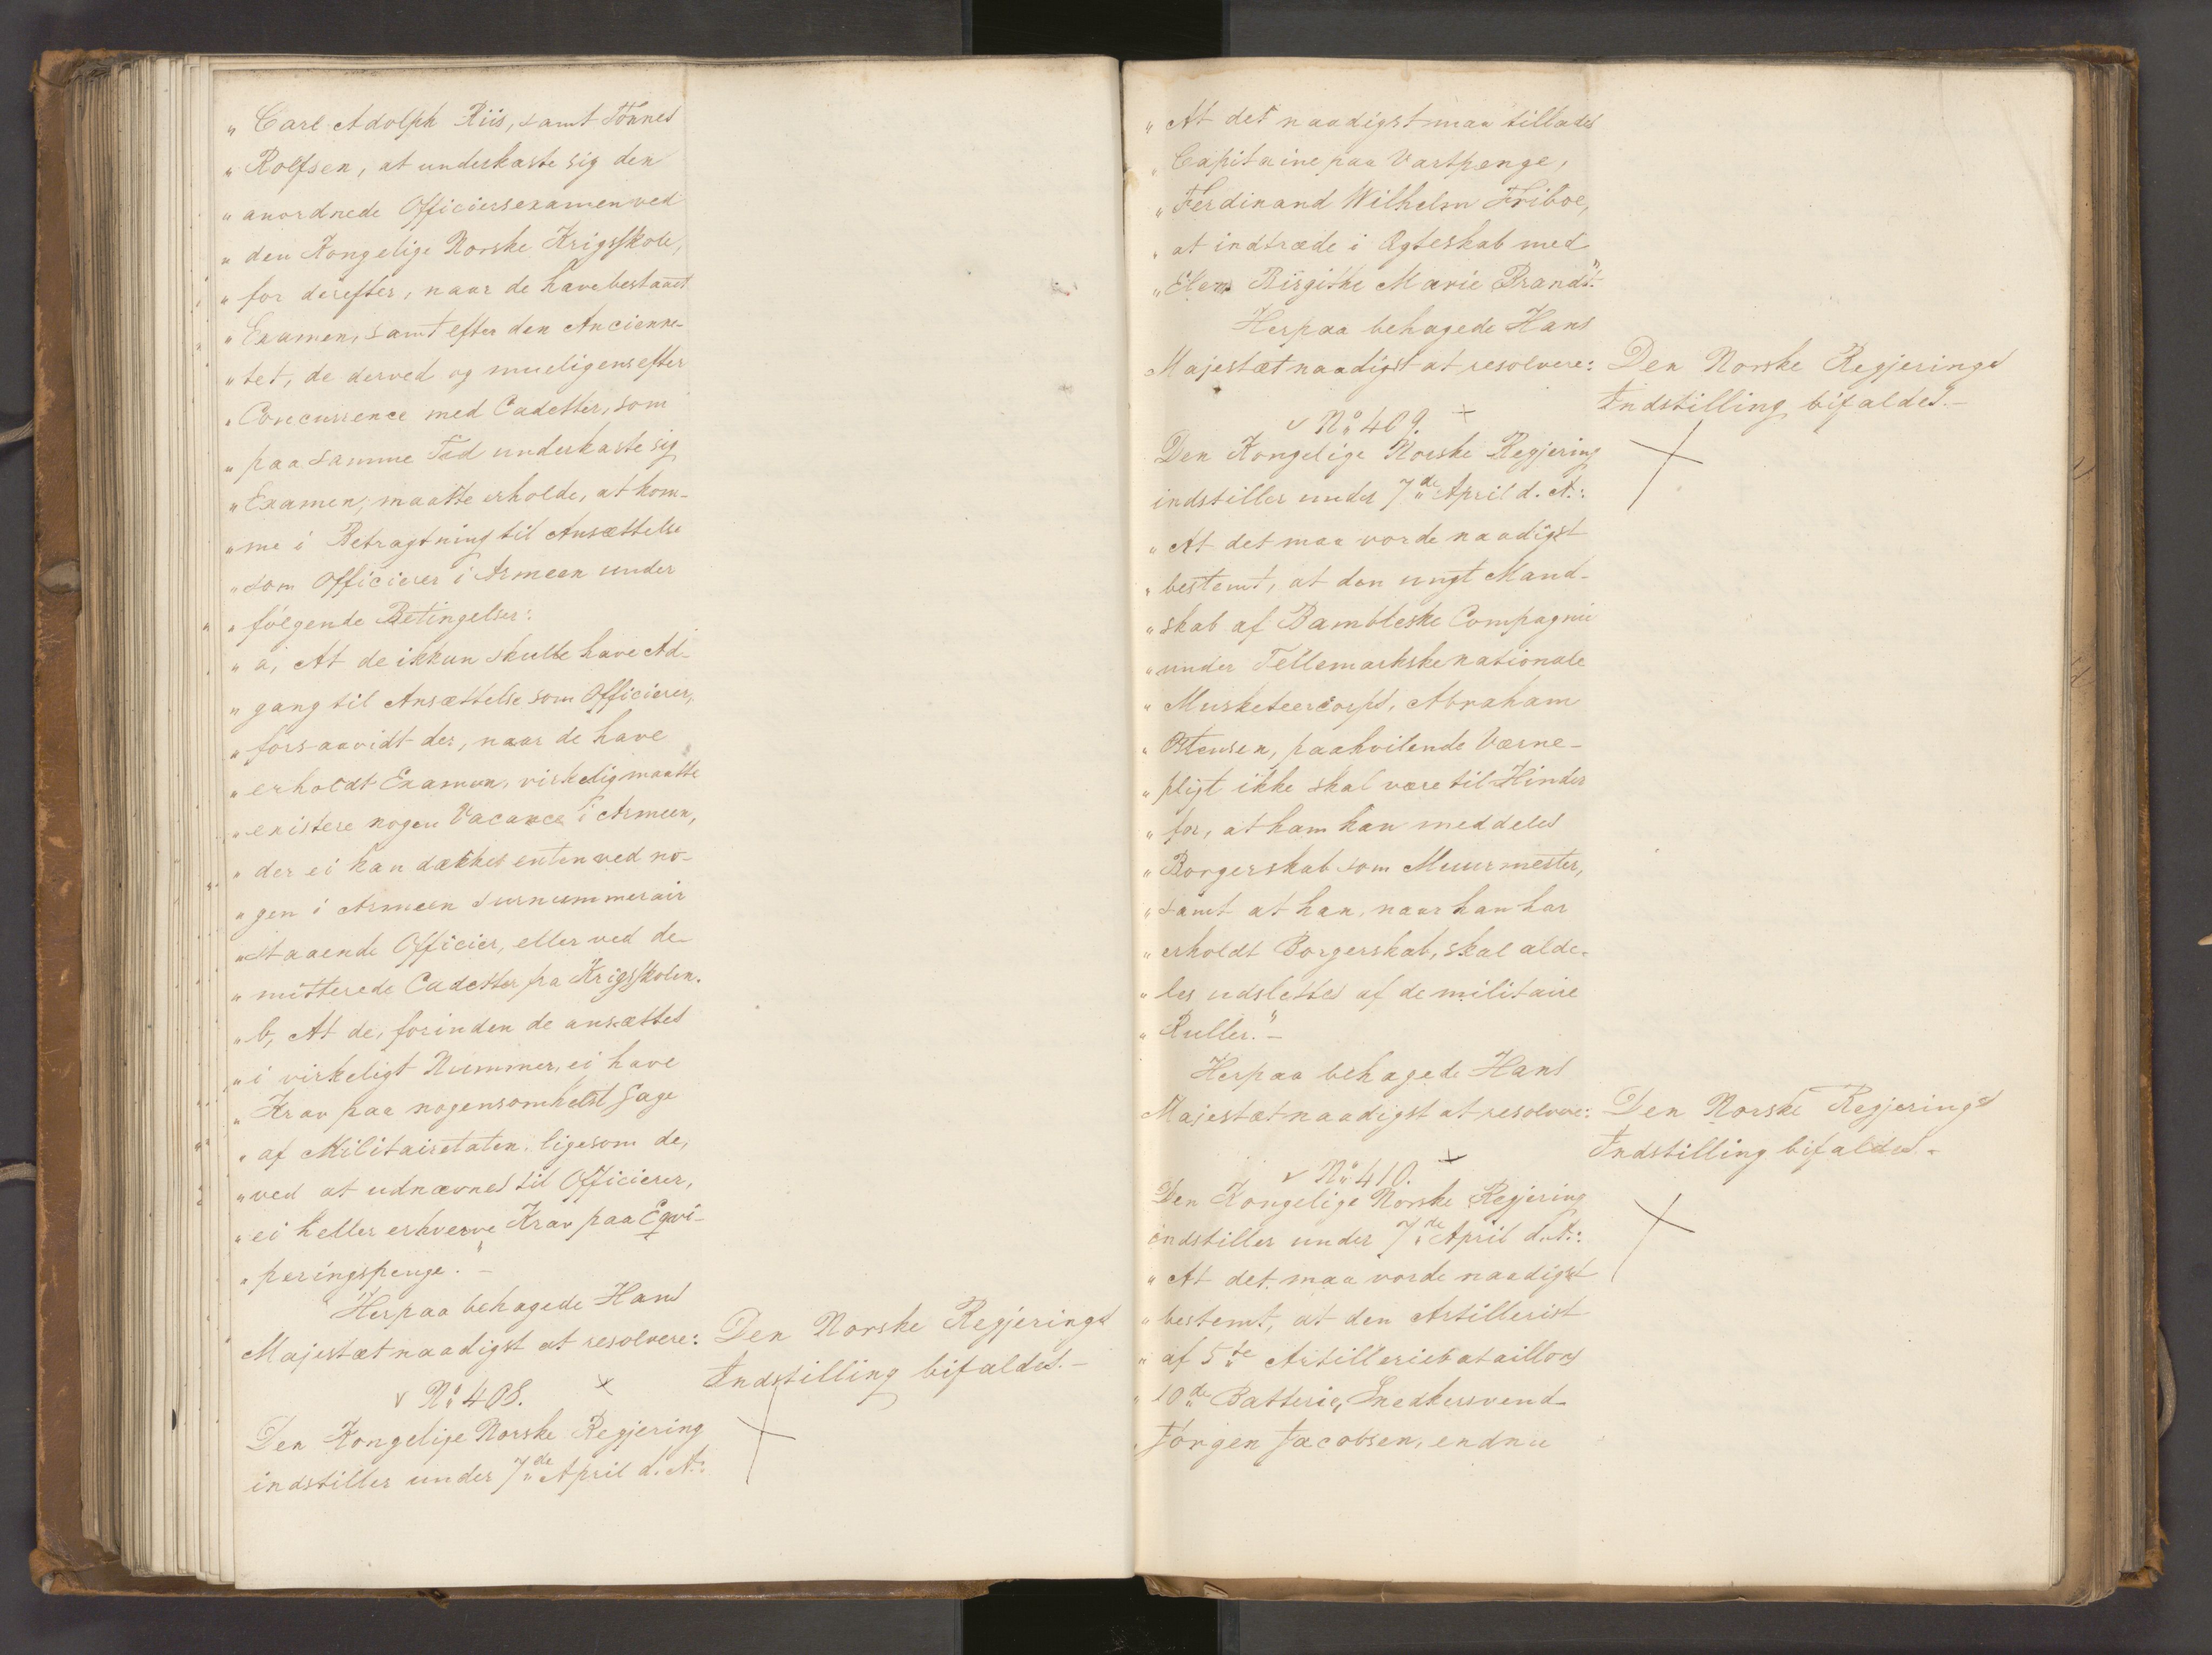 „ Carl Adolph Riis, samt Tönnes
„ Rolfsen, at underkaste sig den
„ anordnede Officiersexamen ved
„ den Kongelige Norske Krigsskole,
„ for derefter, naar de have bestaaet
„ Examen, samt efter den Ancienne-
„ tet, de derved og mueligens efter
„ Concurrence med Cadetter, som
„ paa samme Tid underkaste sig
„ Examen, maatte erholde, at kom-
„ me i Betragtning til Ansættelse
„ som Officierer i Armeen under
„ følgende Betingelser:
„ a, At de ikkun skulle have Ad-
„ gang til Ansættelse som Officierer,
„ forsaavidt der, naar de have
„ erholdt Examen, virkelig maatte
„ existere nogen Vacance i Armeen,
„ der ei kan dækkes enten ved no-
„ gen i Armeen surnummerair
„ staaende Officier, eller ved de-
„ mitterede Cadetter fra Krigsskolen.
„ b, At de, forinden de ansættes
„ i virkeligt Nummer, ei have
„ Krav paa nogensomhelst Gage
„ af Militairetaten, ligesom de,
„ ved at udnævnes til Officierer,
„ ei heller erhverve Krav paa Eqvi-
„ peringspenge." -
Herpaa behagede Hans
Majestæt naadigst at resolvere: Den Norske Regjerings
Indstilling bifaldes. -
No 408.
Den Kongelige Norske Regjering
indstiller under 7de April d. A.:
„ At det naadigst maa tillades
„ Capitaine paa Vartpenge,
„ Ferdinand Wilhelm Friboe,
„ at indtræde i Ægteskab med
„ Elen Birgithe Marie Brandt."
Herpaa behagede Hans
Majestæt naadigst at resolvere: Den Norske Regjerings
Indstilling bifaldes. -
No 409.
Den Kongelige Norske Regjering
indstiller under 7de April d. A.:
„ At det maa vorde naadigst
„ bestemt, at den ungt Mand-
„ skab af Bambleske Compagnie
„ under Tellemarkske nationale
„ Musketeercorps, Abraham
„ Stensen, paahvilende Værne-
„ pligt ikke skal være til Hinder
„ for, at ham kan meddeles
„ Borgerskab som Muurmester,
„ samt at han, naar han har
„ erholdt Borgerskab, skal alde-
„ les udslettes af de militaire
„ Ruller." -
Herpaa behagede Hans
Majestæt naadigst at resolvere: Den Norske Regjerings
Indstilling bifaldes. -
No 410.
Den Kongelige Norske Regjering
indstiller under 7de April d. A.:
„ At det maa vorde naadigst
„ bestemt, at den Artillerist
„ af 5te Artilleriebataillons
„ 10de Batterie, Snedkersvend
„ Jörgen Jacobsen, endnu